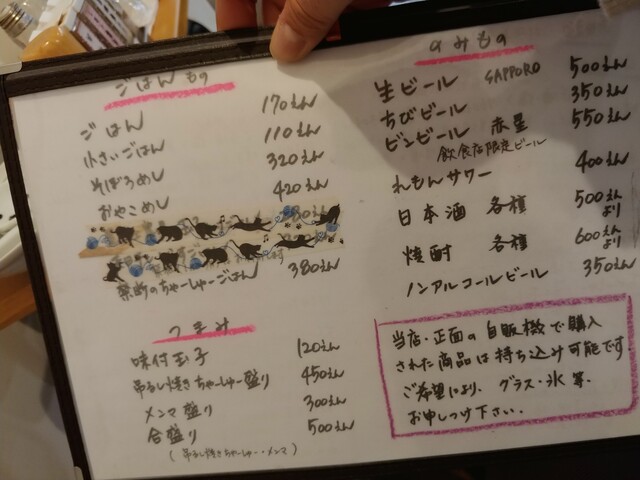 ごはんもの
ごはん 170えん
小さいごはん 110えん
そぼろめし 320えん
おやこめし 420えん
禁断のちゃーしゅーごはん 380えん
つまみ
味付玉子 120えん
吊るし焼きちゃーしゅー盛り 450えん
メンマ盛り 300えん
合盛り 500えん
(吊るし焼きちゃーしゅー・メンマ)
のみもの
生ビール SAPPORO 500えん
ちびビール 350えん
ビンビール 赤星 550えん
飲食店限定ビール
れもんサワー 400えん
日本酒 各種 500えんより
焼酎 各種 600えんより
ノンアルコールビール 350えん
当店・正面の自販機で購入
された商品は持ち込み可能です
ご希望により、グラス・氷等、
お申しつけ下さい。